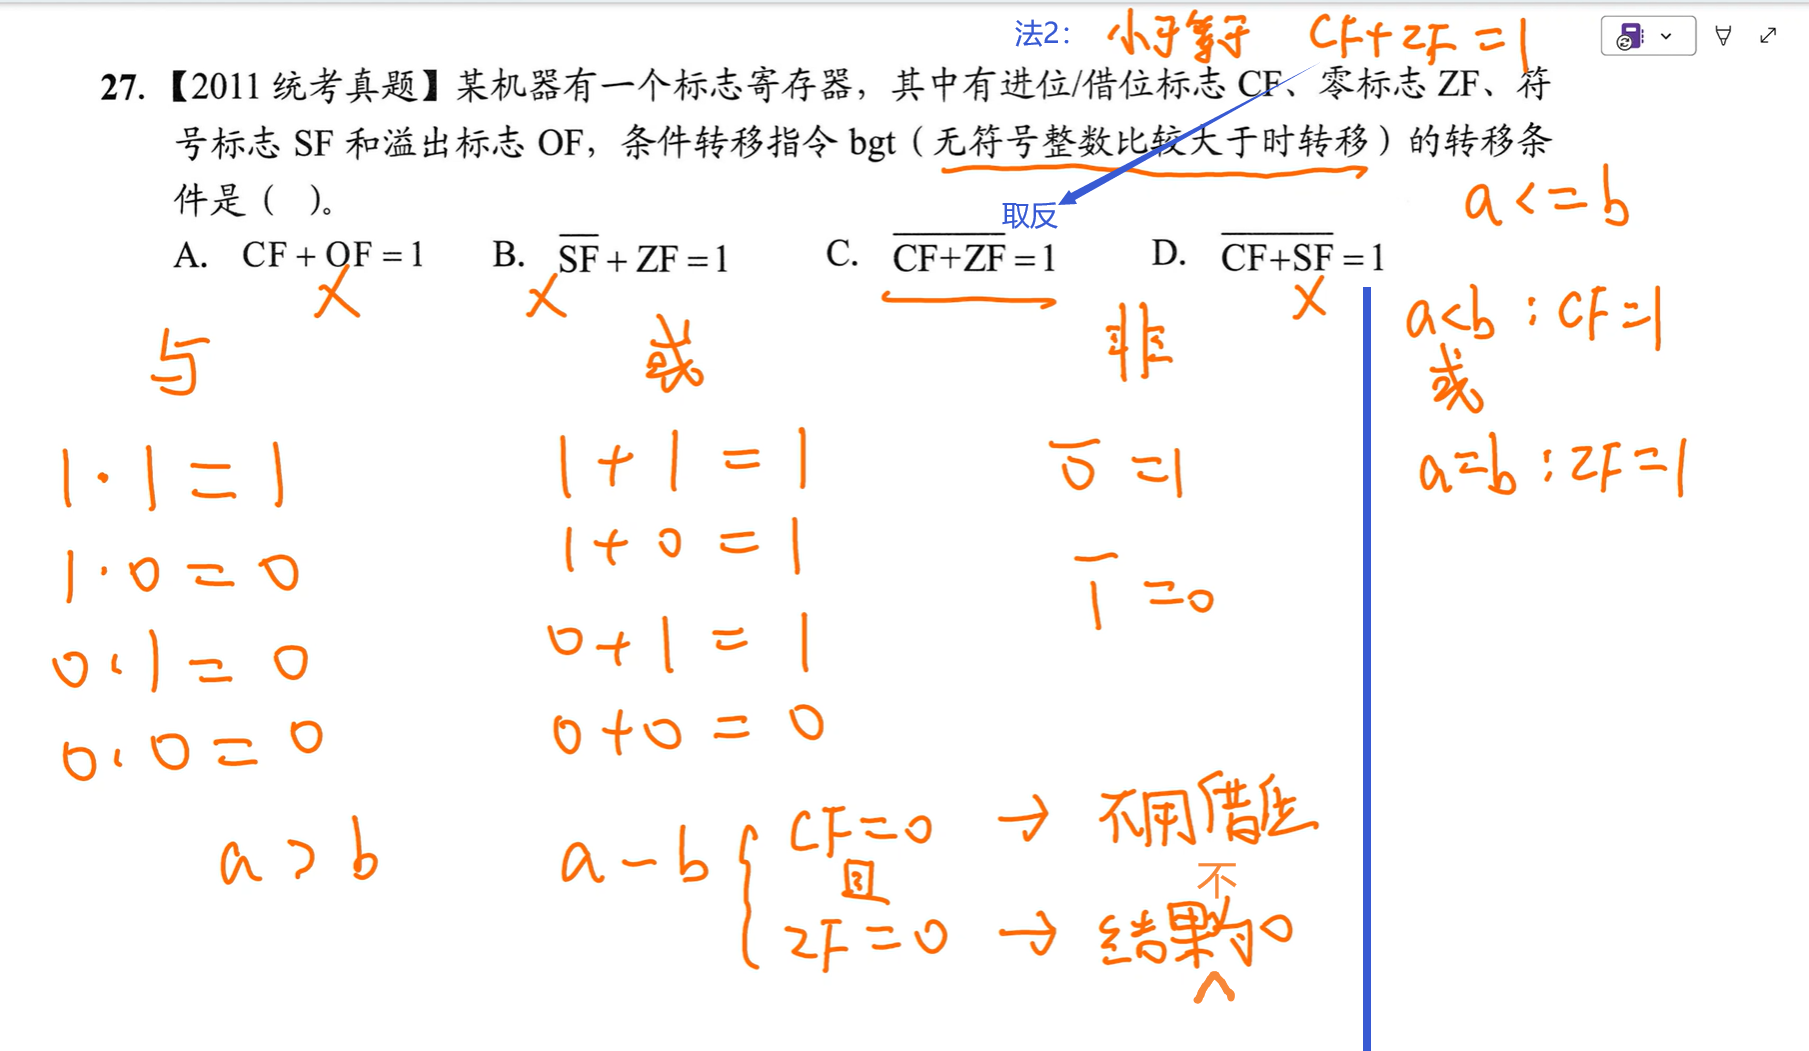 法2： 小于等于 CF+ZF=1
27. 【2011 统考真题】某机器有一个标志寄存器，其中有进位/借位标志 CF、零标志 ZF、符
号标志 SF 和溢出标志 OF，条件转移指令 bgt（无符号整数比较大于时转移）的转移条
件是（ ）。
取反
A. CF + OF = 1 B. \overline{SF} + ZF = 1 C. \overline{CF+ZF} = 1 D. \overline{CF+SF} = 1
× × ×
与 或 非
1·1=1 1+1=1 \overline{0}=1
1·0=0 1+0=1 \overline{1}=0
0·1=0 0+1=1
0·0=0 0+0=0
a>b a-b { CF=0 → 不用借位
且
ZF=0 → 结果不为0
a<=b
a<b：CF=1
或
a=b：ZF=1